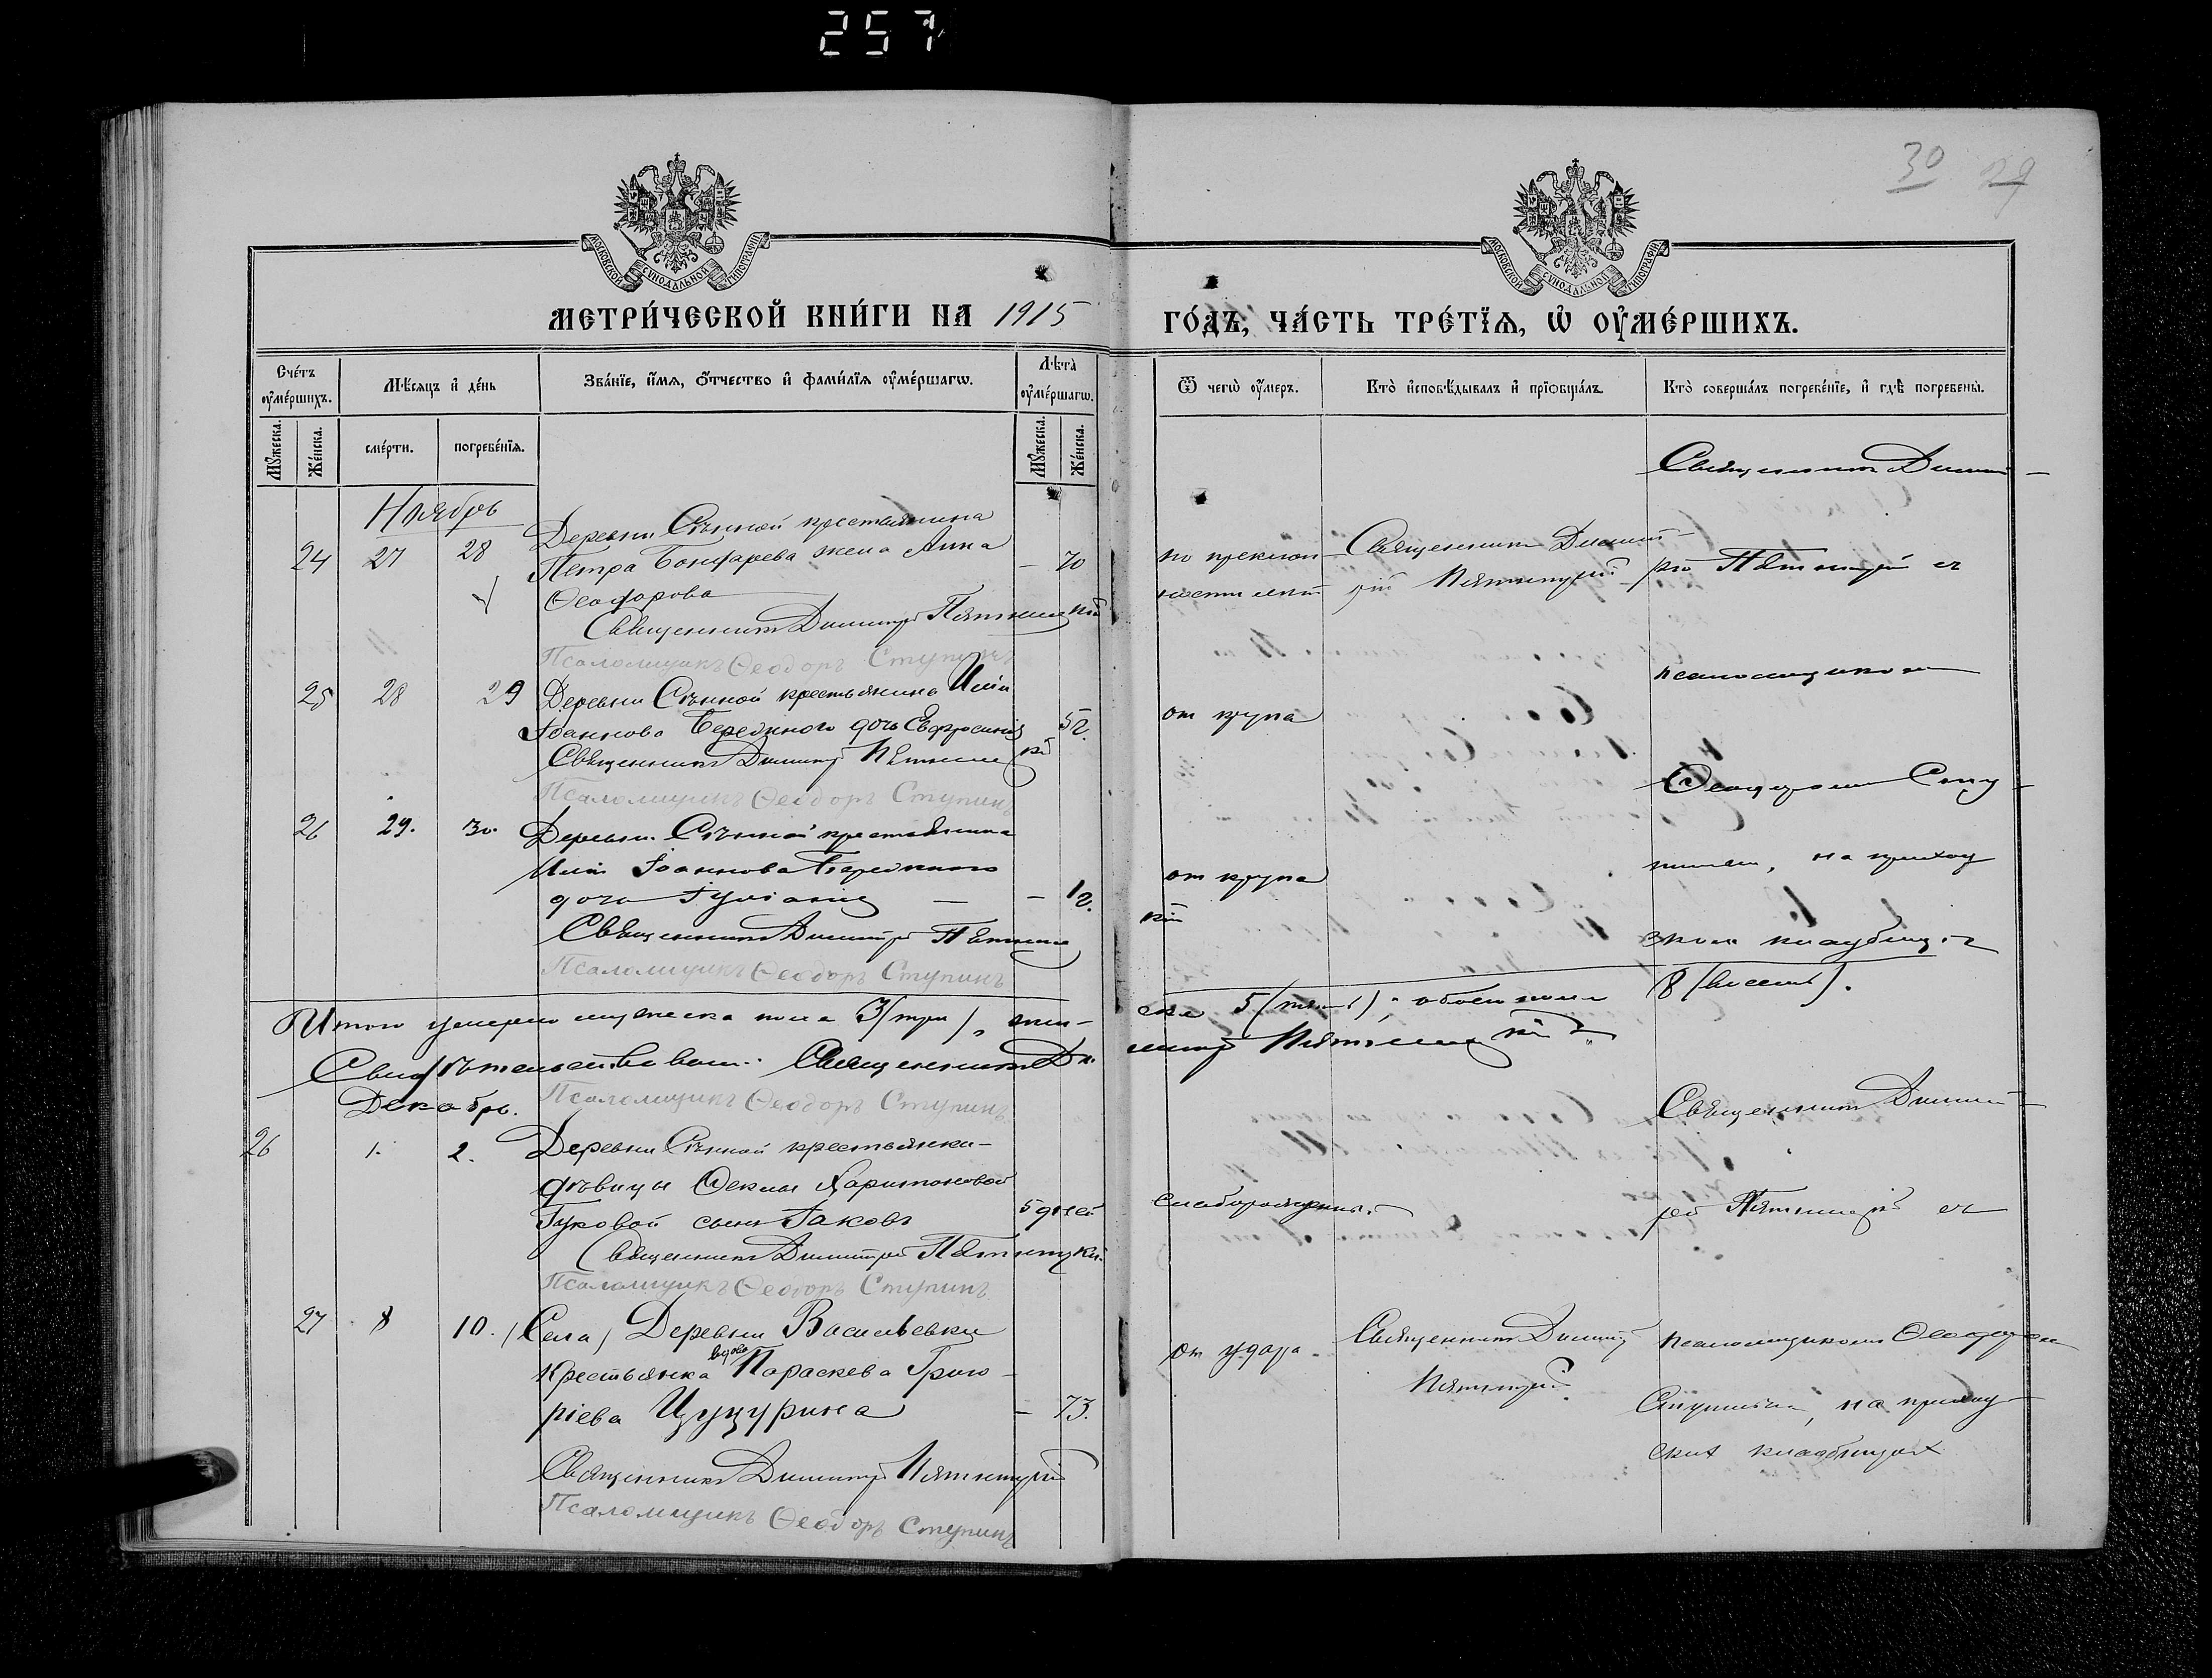 257
30 29
МОСКОВСКОЙ СИНОДАЛЬНОЙ ТИПОГРАФІИ
МОСКОВСКОЙ СИНОДАЛЬНОЙ ТИПОГРАФІИ
МЕТРИ́ЧЕСКОЙ КНИ́ГИ НА 1915 ГО́ДЪ, ЧА́СТЬ ТРЕ́ТЇѦ, Ѡ ОУ҆МЕ́РШИХЪ.
Сче́тъ оу҆ме́ршихъ.
Мѣ́сяцъ и҆ де́нь
Зва́нїе, и҆́мѧ, ѻ҆́тчество и҆ фами́лїѧ оу҆ме́ршагѡ.
Лѣ́та оу҆ме́ршагѡ.
Ѿ чегѡ̀ оу҆́меръ.
Кто̀ и҆сповѣ́дывалъ и҆ прїѡбща́лъ.
Кто̀ соверша́лъ погребе́нїе, и҆ гдѣ̀ погребены̀.
Мꙋ́жеска.
Же́нска.
сме́рти.
погребе́нїѧ.
Мꙋ́жеска.
Же́нска.
Ноябрь
24 27 28 Деревни Сѣнной крестьянина
Петра Бондарева жена Анна — 70
Ѳеодорова
Священникъ Димитрій Пятницкій
Псаломщикъ Ѳеодоръ Ступинъ
по преклонности лѣтъ
Священникъ Димитрій Пятницкій
Священникъ Димитрій Пятницкій съ
псаломщикомъ
Ѳеодоромъ Сту-
пинымъ, на приход
скомъ кладбищѣ
25 28 29 Деревни Сѣнной крестьянина Иліи
Іоаннова Бережного дочь Евфросинія 5г.
Священникъ Димитрій Пятницкій
Псаломщикъ Ѳеодоръ Ступинъ
от крупа
26 29. 30. Деревни Сѣнной крестьянина
Иліи Іоаннова Бережного
дочь Іуліанія — — 1г.
Священникъ Димитрій Пятницкій
Псаломщикъ Ѳеодоръ Ступинъ
от крупа
Итого умерло мужеска пола 3 (три), жен-
ска 5 (пять), обоего пола 8 (восемь).
Свидѣтельствовали: Священникъ Димитрій Пятницкій
Псаломщикъ Ѳеодоръ Ступинъ
Декабрь.
26 1. 2. Деревни Сѣнной крестьянки-
дѣвицы Ѳеклы Харитоновой
Гуковой сынъ Іаковъ 5 дней
Священникъ Димитрій Пятницкій
Псаломщикъ Ѳеодоръ Ступинъ
слаборожденія.
Священникъ Димит-
рій Пятницкій съ
27 8 10. (Села) Деревни Васильевки
крестьянка вдова Параскева Григо-
ріева Цуцурина — 73.
Священникъ Димитрій Пятницкій
Псаломщикъ Ѳеодоръ Ступинъ
От удара.
Священникъ Димитрій
Пятницкій
псаломщикомъ Ѳеодоромъ
Ступинымъ, на приход
скихъ кладбищахъ